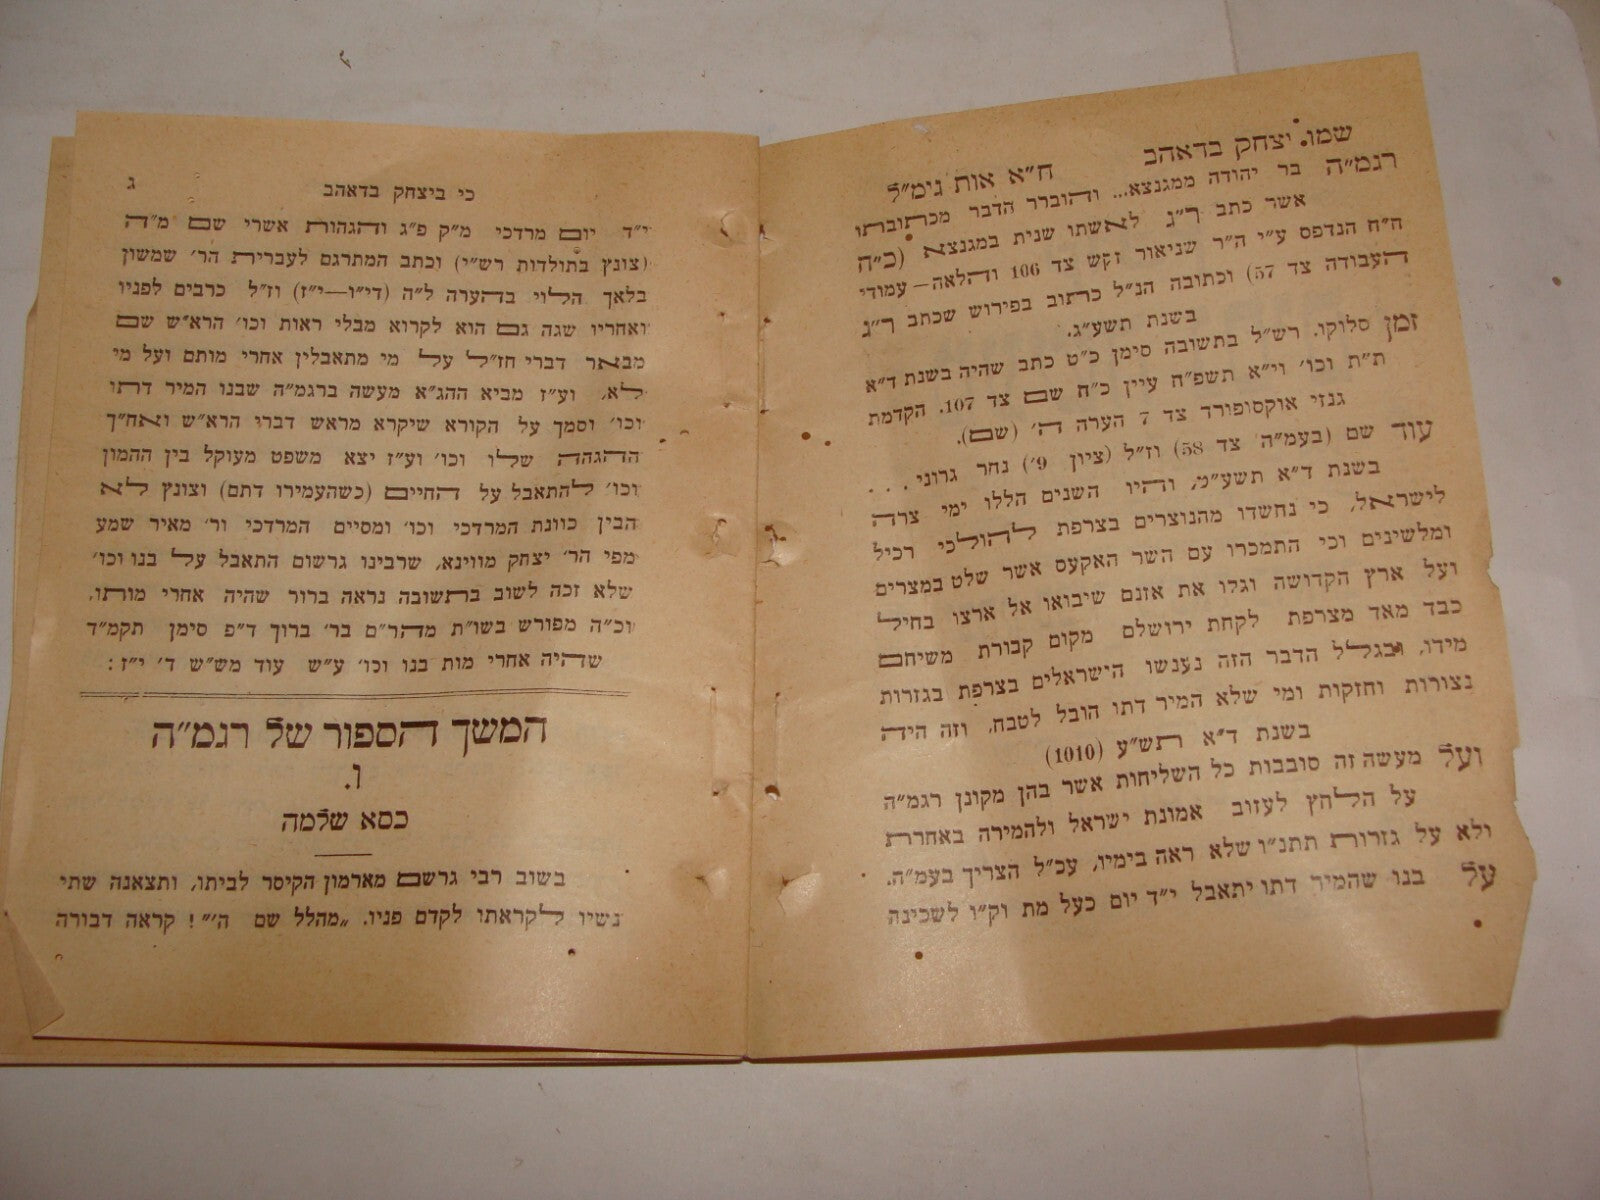 שמו. יצחק בדאהב
ח״א אות גימ״ל
רגמ״ה בר יהודה ממגנצא... והוברר הדבר מכתובתו
אשר כתב ר״ג לאשתו שנית במגנצא (כ״ה
ח״ח הנדפס ע״י ה״ר שניאור זקש צד 106 והלאה – עמודי
העבודה צד 57) וכתובה הנ״ל כתוב בפירוש שכתב ר״ג
בשנת תשע״ג.
זמן סלוקו. רש״ל בתשובה סימן כ״ט כתב שהיה בשנת ד״א
ת״ת וכו׳ וי״א תשפ״ח עיין כ״ח שם צד 107. הקדמת
גנזי אוקספורד צד 7 הערה ה׳ (שם).
עוד שם (בעמ״ה צד 58) וז״ל (ציון 9׳) נחר גרוני . . .
בשנת ד״א תשע״מ, והיו השנים הללו ימי צרה
לישראל, כי נחשדו מהנוצרים בצרפת להולכי רכיל
ומלשינים וכי התמכרו עם השר האקעס אשר שלט במצרים
ועל ארץ הקדושה וגלו את אזנם שיבואו אל ארצו בחיל
כבד מאד מצרפת לקחת ירושלם מקום קבורת משיחם
מידו, ובגלל הדבר הזה נענשו הישראלים בצרפת בגזרות
נצורות וחזקות ומי שלא המיר דתו הובל לטבח, וזה היה
בשנת ד״א תש״ע (1010)
ועל מעשה זה סובבות כל השליחות אשר בהן מקונן רגמ״ה
על הלחץ לעזוב אמונת ישראל ולהמירה באחרת
ולא על גזרות תתנ״ו שלא ראה בימיו, עכ״ל הצריך בעמ״ה.
על בנו שהמיר דתו יתאבל י״ד יום כעל מת וק״ו לשכינה
כי ביצחק בדאהב
ג
י״ד יום מרדכי מ״ק פ״ג והגהות אשרי שם מ״ה
(צונץ בתולדות רש״י) וכתב המתרגם לעברית הר׳ שמשון
בלאך הלוי בהערה ל״ה (די״ו—י״ז) וז״ל כרבים לפניו
ואחריו שגה גם הוא לקרוא מבלי ראות וכו׳ הרא״ש שם
מבאר דברי חז״ל על מי מתאבלין אחרי מותם ועל מי
לא, וע״ז מביא ההג״א מעשה ברגמ״ה שבנו המיר דתו
וכו׳ וסמך על הקורא שיקרא מראש דברי הרא״ש ואח״ך
ההגהה שלו וכו׳ וע״ז יצא משפט מעוקל בין ההמון
וכו׳ להתאבל על החיים (כשהעמירו דתם) וצונץ לא
הבין כוונת המרדכי וכו׳ ומסיים המרדכי ור׳ מאיר שמע
מפי הר׳ יצחק מווינא, שרבינו גרשום התאבל על בנו וכו׳
שלא זכה לשוב בתשובה נראה ברור שהיה אחרי מותו,
וכ״ה מפורש בשו״ת מהר״ם בר׳ ברוך ד״פ סימן תקמ״ד
שהיה אחרי מות בנו וכו׳ ע״ש עוד מש״ש ד׳ י״ז :
המשך הספור של רגמ״ה
ו.
כסא שלמה
בשוב רבי גרשם מארמון הקיסר לביתו, ותצאנה שתי
נשיו לקראתו לקדם פניו. „מהלל שם ה׳״! קראה דבורה